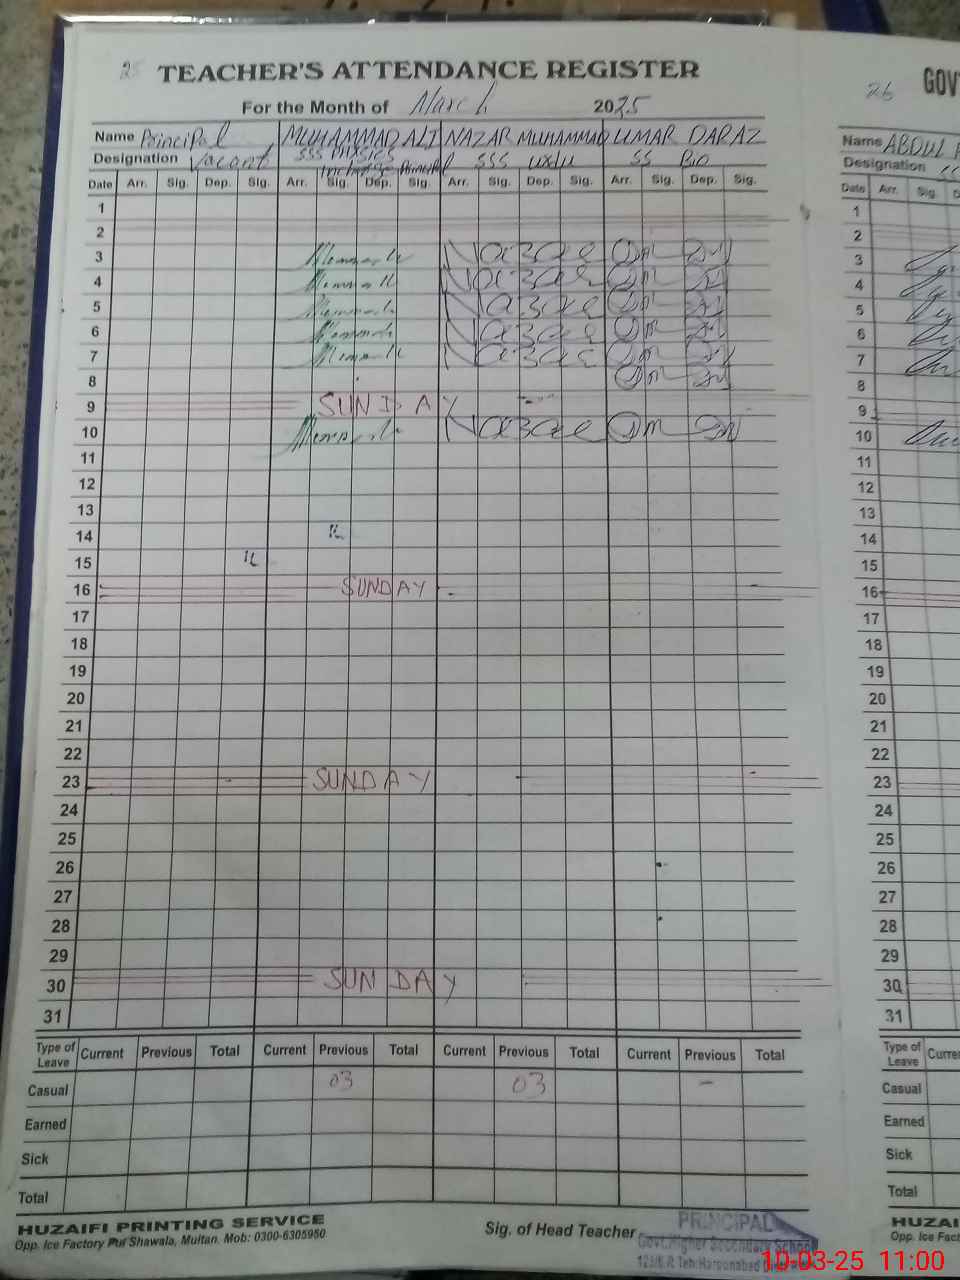 25
TEACHER'S ATTENDANCE REGISTER
For the Month of March 2025
Name Principal MUHAMMAD ALI NAZAR MUHAMMAD UMAR DARAZ
Designation Vacant SSS PHYSICS SSS Urdu SS Bio
Incharge Principal
Date Arr. Sig. Dep. Sig. Arr. Sig. Dep. Sig. Arr. Sig. Dep. Sig. Arr. Sig. Dep. Sig.
1
2
3
4
5
6
7
8
9 SUNDAY
10
11
12
13
14
15
16 SUNDAY
17
18
19
20
21
22
23 SUNDAY
24
25
26
27
28
29
30 SUNDAY
31
Type of Leave Current Previous Total Current Previous Total Current Previous Total Current Previous Total
Casual 03 03 -
Earned
Sick
Total
HUZAIFI PRINTING SERVICE
Opp. Ice Factory Pul Shawala, Multan. Mob: 0300-6305950
Sig. of Head Teacher
PRINCIPAL
Govt. Higher Secondary School
Teh: Haroonabad
26
GOV
Name ABDUL
Designation
Date Arr. Sig.
1
2
3
4
5
6
7
8
9
10
11
12
13
14
15
16
17
18
19
20
21
22
23
24
25
26
27
28
29
30
31
Type of Leave Curre
Casual
Earned
Sick
Total
HUZAI
Opp. Ice Fact
10-03-25 11:00